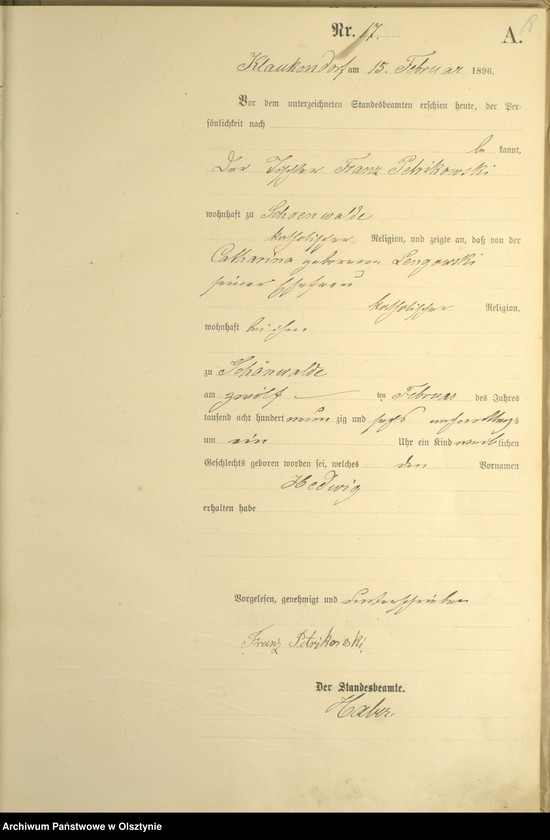 Nr. 17.
A.
18
Klaukendorf am 15. Februar 1896.
Vor dem unterzeichneten Standesbeamten erschien heute, der Per-
sönlichkeit nach
be kannt,
Der Tischler Franz Petrikowski
wohnhaft zu Schoenwalde
katholischer Religion, und zeigte an, daß von der
Catharina geborenen Lengowski
seiner Ehefrau
katholischer Religion,
wohnhaft bei ihm
zu Schönwalde
am zwölf ten Februar des Jahres
tausend acht hundert neun zig und sechs nachmittags
um ein Uhr ein Kind weiblichen
Geschlechts geboren worden sei, welches den Vornamen
Hedwig
erhalten habe
Vorgelesen, genehmigt und unterschrieben
Franz Petrikowski
Der Standesbeamte.
Haber.
Archiwum Państwowe w Olsztynie